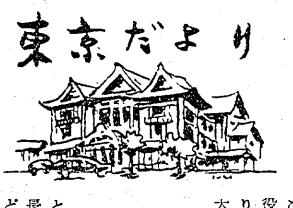 東京だより